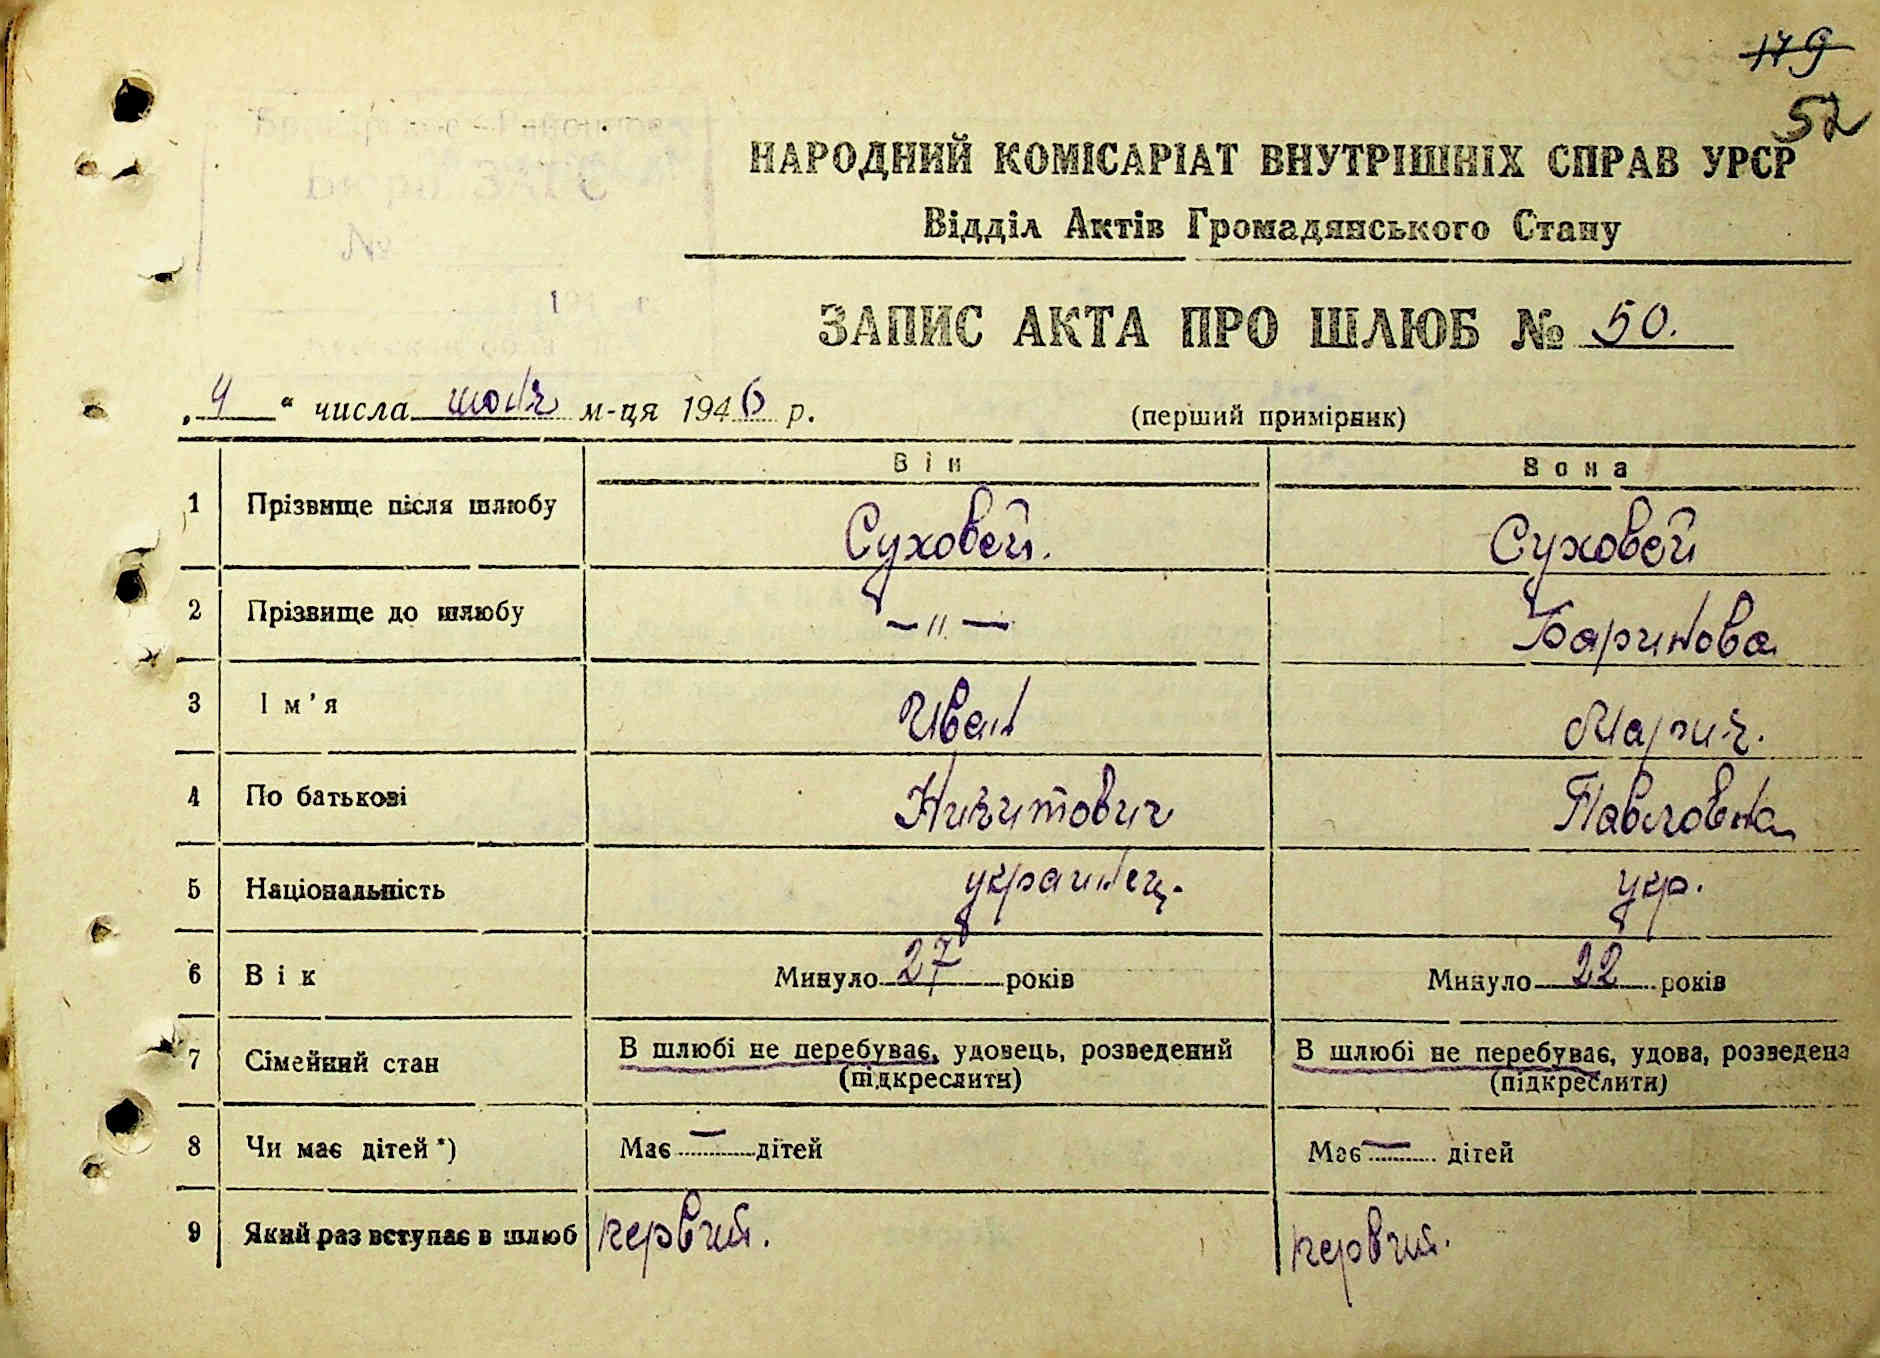 179
52
НАРОДНИЙ КОМІСАРІАТ ВНУТРІШНІХ СПРАВ УРСР
Відділ Актів Громадянського Стану
ЗАПИС АКТА ПРО ШЛЮБ № 50.
„4“ числа июня м-ця 1946 р. (перший примірник)
Він Вона
1 Прізвище після шлюбу Суховей. Суховей
2 Прізвище до шлюбу —"— Баринова
3 Ім'я Иван Мария.
4 По батькові Никитович Павловна
5 Національність украинец. укр.
6 Вік Минуло 27 років Минуло 22 років
7 Сімейний стан В шлюбі не перебуває, удовець, розведений (підкреслити) В шлюбі не перебуває, удова, розведена (підкреслити)
8 Чи має дітей *) Має — дітей Має — дітей
9 Який раз вступає в шлюб первий. первий.